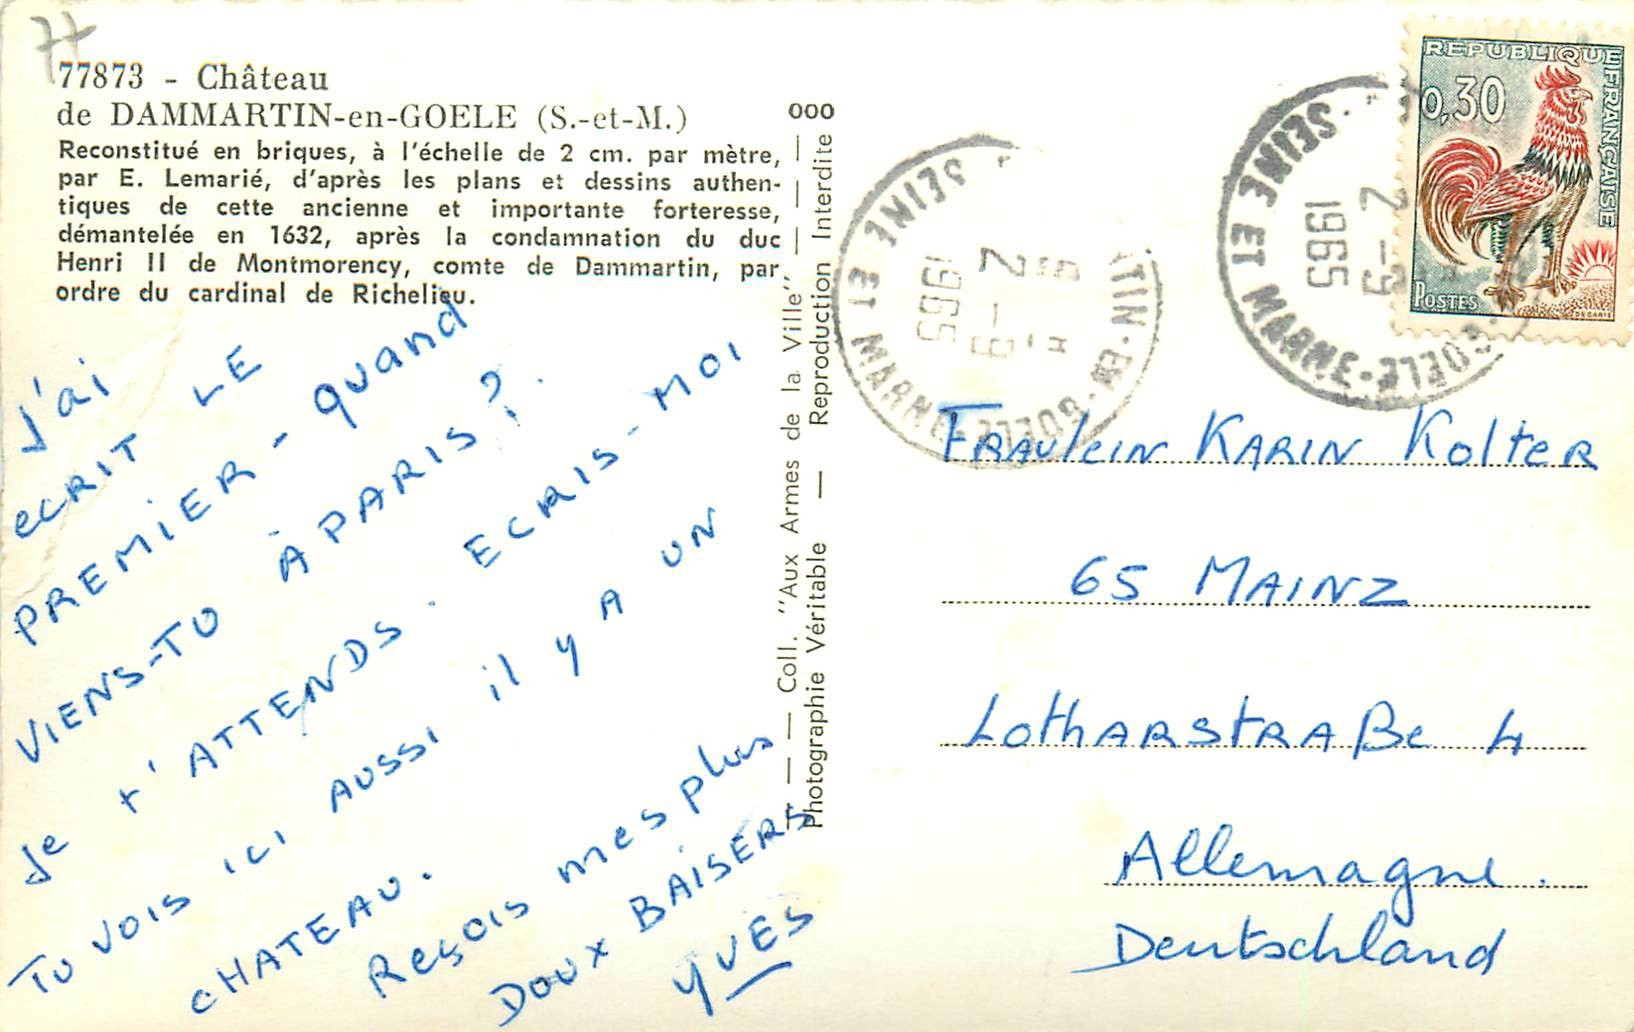 77
77873 - Château
de DAMMARTIN-en-GOELE (S.-et-M.)
Reconstitué en briques, à l'échelle de 2 cm. par mètre,
par E. Lemarié, d'après les plans et dessins authen-
tiques de cette ancienne et importante forteresse,
démantelée en 1632, après la condamnation du duc
Henri II de Montmorency, comte de Dammartin, par
ordre du cardinal de Richelieu.
J'ai ECRIT LE
PREMIER - quand
VIENS-TU À PARIS ?.
Je t'ATTENDS. ECRIS-MOI
TU VOIS ICI AUSSI il y A UN
CHATEAU.
Reçois mes plus
DOUX BAISERS
YVES
000
— Coll. "Aux Armes de la Ville" —
Photographie Véritable — Reproduction Interdite
SEINE ET MARNE
TIN-EN-GOELE
2 - 9
1965
SEINE ET MARNE
GOELE
2 - 9
1965
REPUBLIQUE FRANÇAISE
0,30
POSTES
DECARIS
FRAulein KARIN Kolter
65 MAINZ
LotHARstRAße 4
Allemagne.
Deutschland